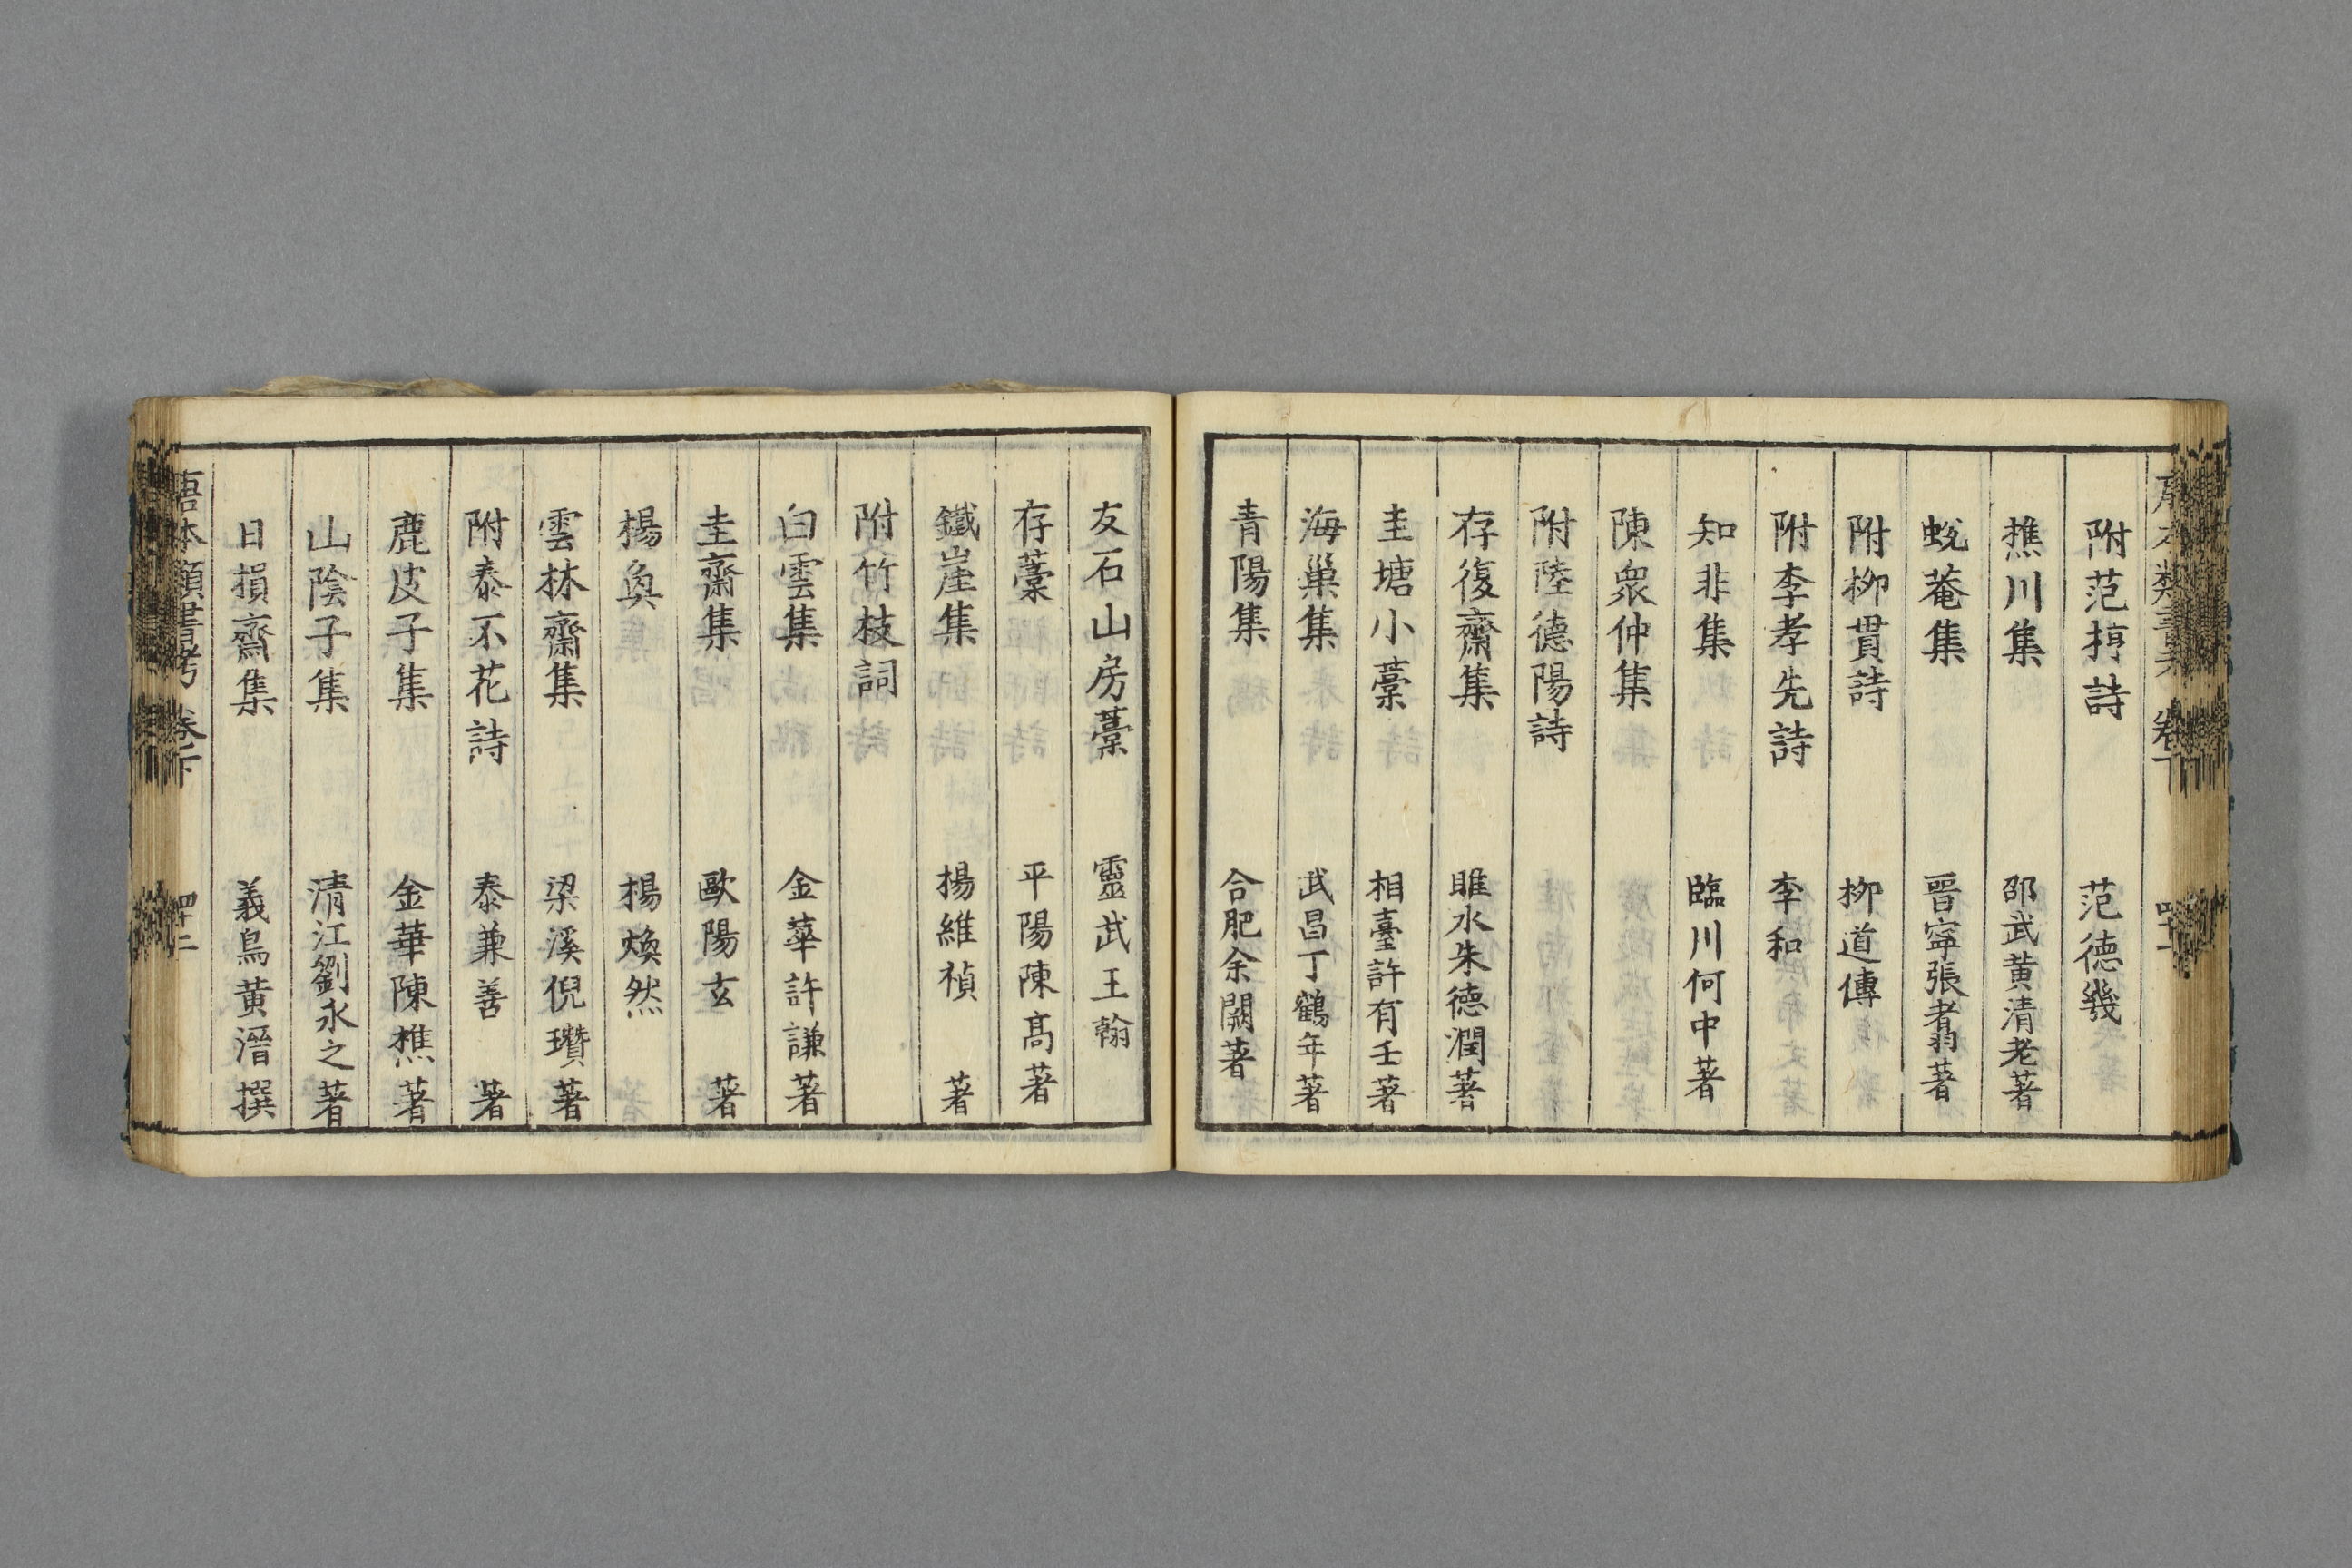 附范梈詩　范德幾
樵川集　邵武黄清老著
蛻菴集　晉寧張耆翁著
附柳貫詩　柳道傳
附李孝先詩　李和
知非集　臨川何中著
陳衆仲集
附陸德陽詩
存復齋集　睢水朱德潤著
圭塘小藁　相臺許有壬著
海巢集　武昌丁鶴年著
青陽集　合肥余闕著
友石山房藁　靈武王翰
存藁　平陽陳髙著
鐵崖集　揚維禎　著
附竹枝詞
白雲集　金華許謙著
圭齋集　歐陽玄　著
楊奐　楊煥然
雲林齋集　梁溪倪瓚著
附泰不花詩　泰兼善　著
鹿皮子集　金華陳樵著
山陰子集　清江劉永之著
日損齋集　義烏黄溍撰
卷下　四十二